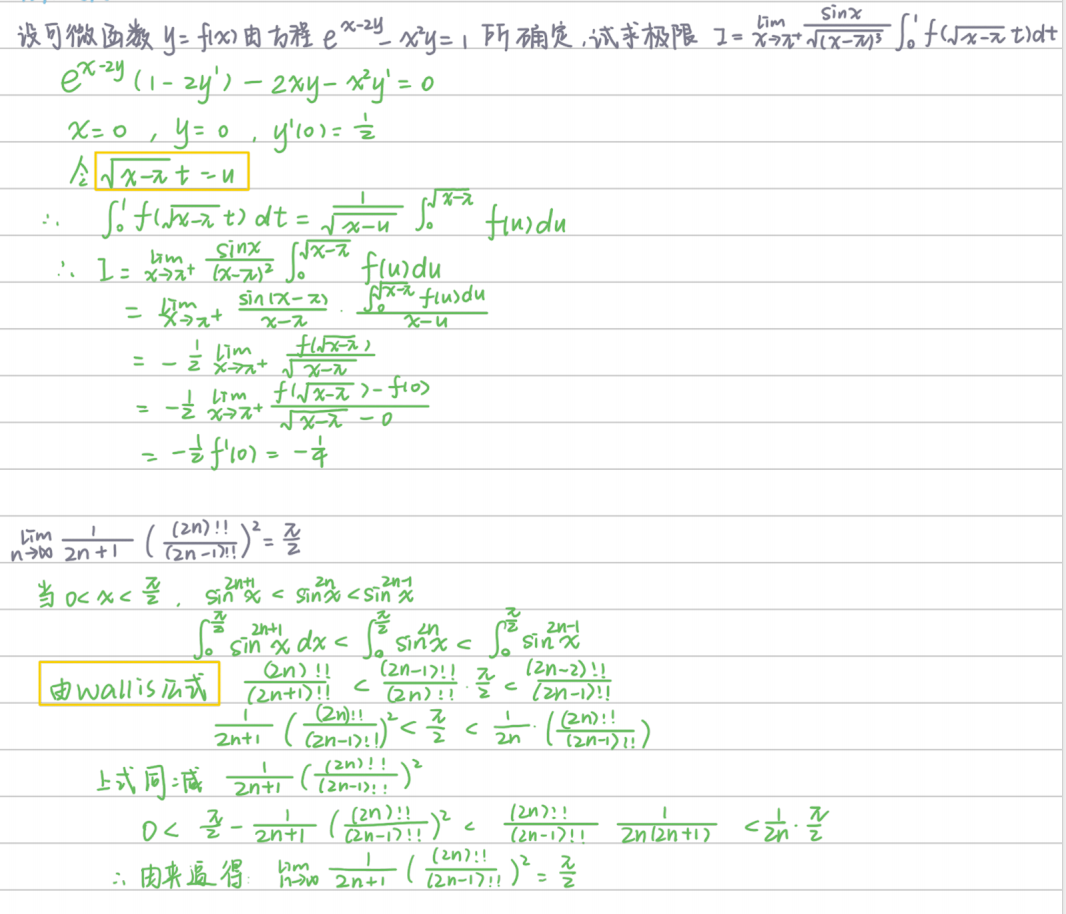 设可微函数 y=f(x)由方程 e^{x-2y}-x²y=1 所确定,试求极限 I=lim_{x→π⁺} sinx/√((x-π)³) ∫₀¹ f(√(x-π) t)dt
e^{x-2y}(1-2y')-2xy-x²y'=0
x=0 , y=0 , y'(0)=1/2
令 √(x-π) t=u
∴ ∫₀¹ f(√(x-π) t) dt = 1/√(x-u) ∫₀^{√(x-π)} f(u)du
∴ I=lim_{x→π⁺} sinx/(x-π)² ∫₀^{√(x-π)} f(u)du
= lim_{x→π⁺} sin(x-π)/(x-π) · ∫₀^{√(x-π)} f(u)du/(x-u)
= -1/2 lim_{x→π⁺} f(√(x-π))/√(x-π)
= -1/2 lim_{x→π⁺} (f(√(x-π))-f(0))/(√(x-π)-0)
= -1/2 f'(0) = -1/4
lim_{n→∞} 1/(2n+1) ((2n)!!/(2n-1)!!)² = π/2
当 0<x<π/2 , sin^{2n+1}x < sin^{2n}x < sin^{2n-1}x
∫₀^{π/2} sin^{2n+1}x dx < ∫₀^{π/2} sin^{2n}x < ∫₀^{π/2} sin^{2n-1}x
由wallis公式 (2n)!!/(2n+1)!! < (2n-1)!!/(2n)!! · π/2 < (2n-2)!!/(2n-1)!!
1/(2n+1) ((2n)!!/(2n-1)!!)² < π/2 < 1/2n · ((2n)!!/(2n-1)!!)
上式同时减 1/(2n+1) ((2n)!!/(2n-1)!!)²
0 < π/2 - 1/(2n+1) ((2n)!!/(2n-1)!!)² < (2n)!!/(2n-1)!! 1/(2n(2n+1)) < 1/2n · π/2
∴ 由夹逼得 lim_{n→∞} 1/(2n+1) ((2n)!!/(2n-1)!!)² = π/2